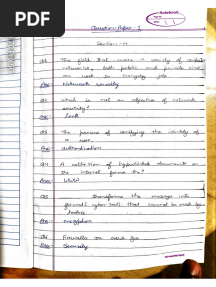 PDF
Notebook
Question Paper - 1
Section - A
Q1 The field that covers a variety of computer
networks, both public and private, that
are used in everyday jobs.
Ans: Network security
Q2 Which is not an objective of network
security?
Ans: Lock
Q3 The process of verifying the identity of
a user.
Ans: authentication
Q4 A collection of hyperlinked documents on
the internet forms the?
Ans: WWW
Q5 transforms the message into
format (cipher text) that cannot be read by
hackers.
Ans: encryption
Q6 Firewalls are used for
Ans: Security